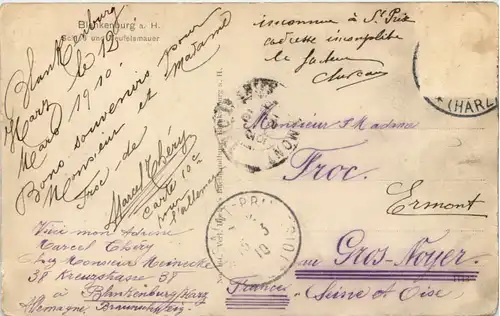 Blankenburg a. H.
Schloß und Teufelsmauer
Blankenburg
Harz le 12
Mars 1910.
Bons souvenirs pour
Monsieur et Madame
Froc de
Marcel Théry
carte 10c
pour
l'allemagne
Voici mon adresse
Marcel Théry
Chez Monsieur Meinecke
38 Kreuzstrasse 38
à Blankenburg/Harz
Allemagne Braunschweig
inconnu à St Prix
adresse incomplète
le facteur
(HARZ)
Monsieur & Madame
Froc.
Ermont
au Gros-Noyer.
France Seine et Oise
ST-PRIX